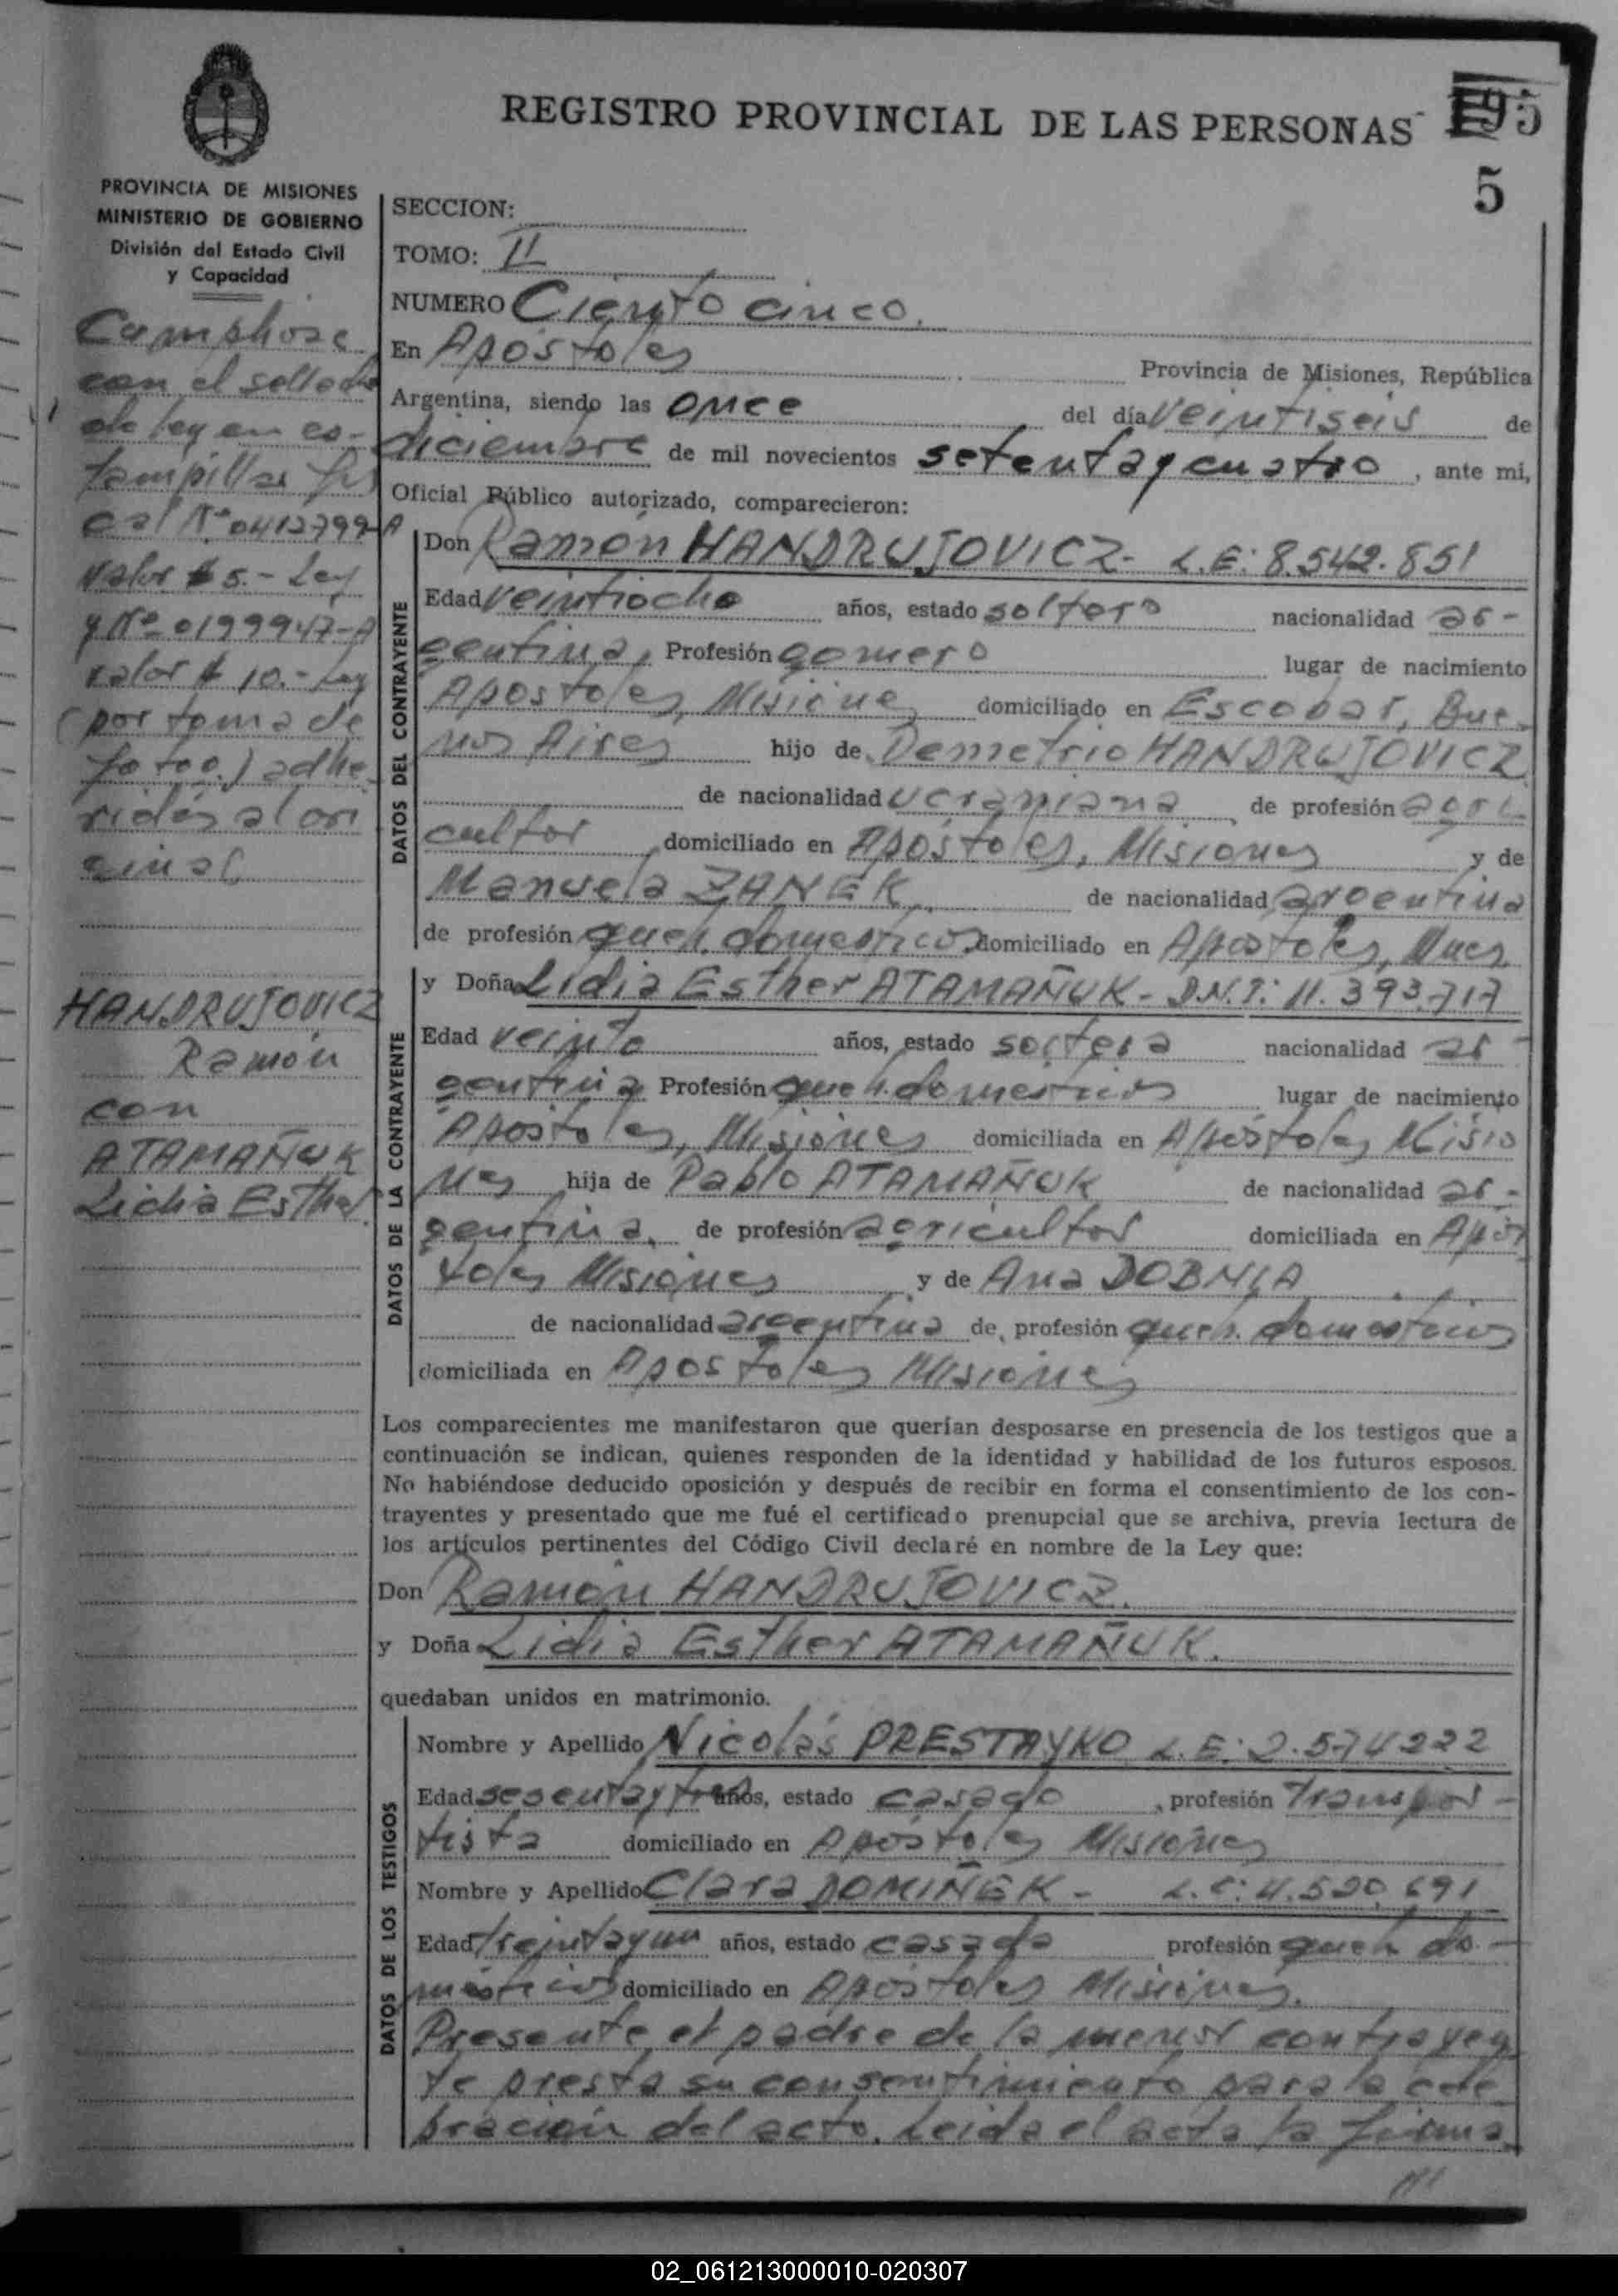 REGISTRO PROVINCIAL DE LAS PERSONAS
195
5
PROVINCIA DE MISIONES
MINISTERIO DE GOBIERNO
División del Estado Civil
y Capacidad
con el sellado
de ley en es-
tampillas fis
cal Nº 0412799-A
valor $ 5.- Ley
y Nº 0199947-A
valor $ 10.- Ley
(por toma de
fotoc.) adhe
ridas al ori
ginal
HANDRUJOVICZ
Ramón
con
ATAMAÑUK
Lidia Esther
SECCION:
TOMO: II
NUMERO Ciento cinco.
En Apóstoles Provincia de Misiones, República
Argentina, siendo las once del día veintiseis de
diciembre de mil novecientos setenta y cuatro, ante mi,
Oficial Público autorizado, comparecieron:
DATOS DEL CONTRAYENTE
Don Ramón HANDRUJOVICZ- L.E: 8.542.851
Edad veintiocho años, estado soltero nacionalidad ar-
gentina, Profesión gomero lugar de nacimiento
Apostoles, Misiones domiciliado en Escobar, Bue-
nos Aires hijo de Demetrio HANDRUJOVICZ
de nacionalidad ucraniana de profesión agri
cultor domiciliado en Apóstoles, Misiones y de
Manuela ZANEK de nacionalidad argentina
de profesión queh. domesticos domiciliado en Apostoles, Mnes.
DATOS DE LA CONTRAYENTE
y Doña Lidia Esther ATAMAÑUK- D.N.I: 11.393.717
Edad veinte años, estado soltera nacionalidad ar-
gentina Profesión queh. domesticos lugar de nacimiento
Apóstoles, Misiones domiciliada en Apóstoles Misio
nes hija de Pablo ATAMAÑUK de nacionalidad ar-
gentina. de profesión agricultor domiciliada en Após
toles Misiones y de Ana DOBNIA
de nacionalidad argentina de profesión queh. domesticos
domiciliada en Apostoles Misiones
Los comparecientes me manifestaron que querían desposarse en presencia de los testigos que a
continuación se indican, quienes responden de la identidad y habilidad de los futuros esposos.
No habiéndose deducido oposición y después de recibir en forma el consentimiento de los con-
trayentes y presentado que me fué el certificado prenupcial que se archiva, previa lectura de
los artículos pertinentes del Código Civil declaré en nombre de la Ley que:
Don Ramón HANDRUJOVICZ.
y Doña Lidia Esther ATAMAÑUK.
quedaban unidos en matrimonio.
DATOS DE LOS TESTIGOS
Nombre y Apellido Nicolás PRESTAYKO L.E: 2.574222
Edad sesenta y tres años, estado casado, profesión transpor-
tista domiciliado en Apóstoles Misiones
Nombre y Apellido Clara DOMIÑEK- L.C: 4.520.691
Edad treinta y un años, estado casada profesión queh do-
mésticos domiciliado en Apóstoles Misiones.
Presente el padre de la menor contrayen
te presta su consentimiento para la cele
bración del acto. Leida el acta la firma
///
02_061213000010-020307